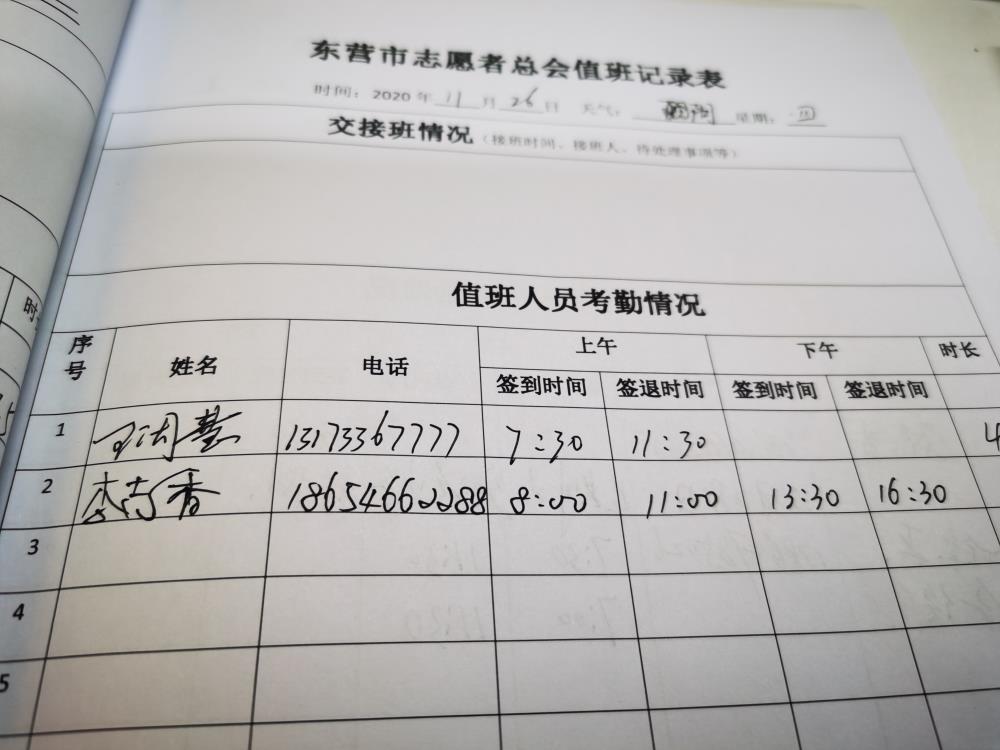 东营市志愿者总会值班记录表
时间：2020年 11 月 26 日 天气： 星期：四
交接班情况（接班时间、接班人、待处理事项等）
值班人员考勤情况
序号 姓名 电话 上午 下午 时长
签到时间 签退时间 签到时间 签退时间
1 13173367777 7:30 11:30 4
2 18654662288 8:00 11:00 13:30 16:30
3
4
5
时